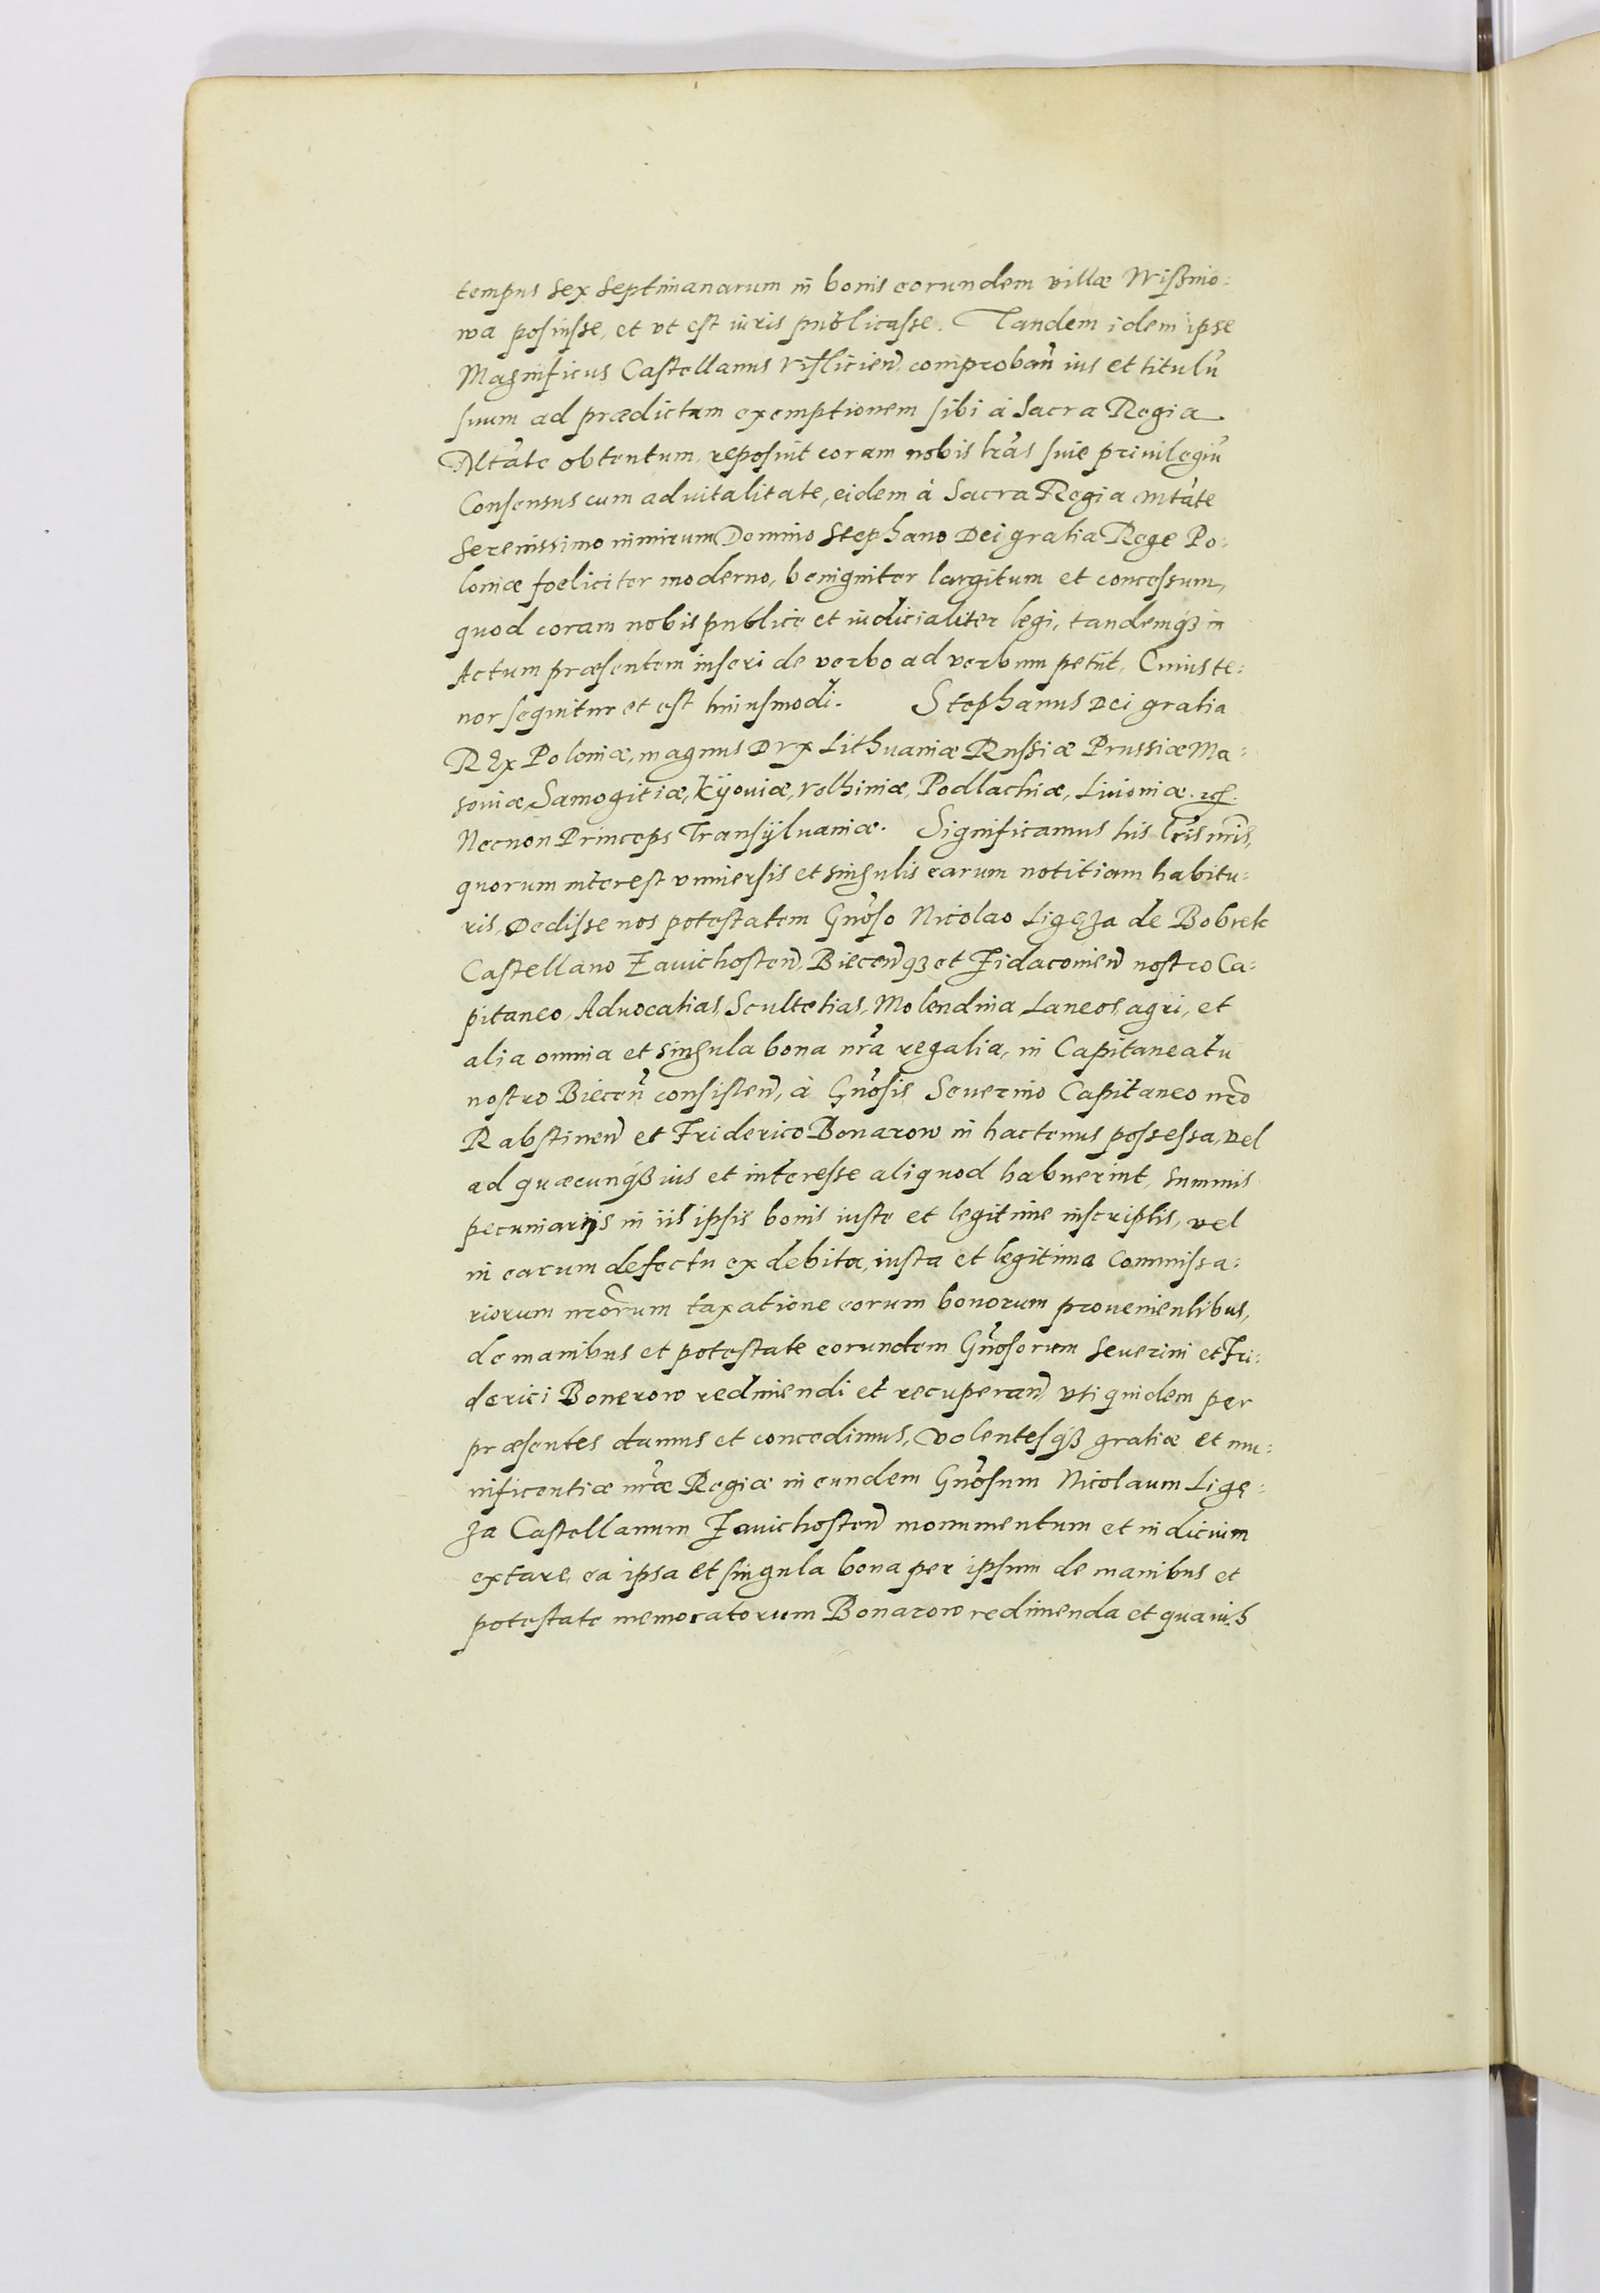 tempus sex septimanarum in bonis eorundem villæ Wißnio:
wa posuisse, et vt est iuris publicasse. Tandem idem ipse
Magnificus Castellanus Vislicien̄ comproban̄ ius et titulū
suum ad prædictam exemptionem sibi à Sacra Regia
Mtāte obtentum, reposuit coram nobis lrās siue priuilegiū
Consensus cum aduitalitate, eidem à Sacra Regia Mtāte
Serenissimo nimirum Domino Stephano Dei gratia Rege Po:
loniæ foeliciter moderno, benigniter largitum et concessum,
quod coram nobis publice et iudicialiter legi, tandemqȝ in
Actum præsentem inseri de verbo ad verbum petÿt, Cuius te:
nor sequitur et est huiusmodi. Stephanus Dei gratia
REx Poloniæ, magnus Dvx Lithuaniæ Russiæ Prussiæ Ma:
soviæ Samogitiæ, Kÿouiæ, Volhiniæ, Podlachiæ, Liuoniæ. ꝛc̄.
Necnon Princeps Transÿluaniæ. Significamus his lrīs nrīs,
quorum interest vniuersis et singulis earum notitiam habitu:
ris, Dedisse nos potestatem Gnōso Nicolao Ligęza de Bobrek
Castellano Zauichosten̄, Biecen̄qȝ et Zidaconien̄ nostro Ca:
pitaneo, Aduocatias, Scultetias, Molendina, Laneos, agri, et
alia omnia et singula bona nrā regalia, in Capitaneatu
nostro Biecen̄ consisten̄, à Gnōsis Seuerino Capitaneo nrō
Rabstinen̄ et Friderico Bonarow in hactenus possessa, vel
ad quæcunqȝ ius et interesse aliquod habuerint, summis
pecuniarijs in iis ipsis bonis iuste et legitime inscriptis, vel
in earum defectu ex debita, iusta et legitima Commissa:
riorum nrōrum taxatione eorum bonorum prouenientibus,
de manibus et potestate eorundem Gnōsorum Seuerini et Fri:
derici Bonerow redimendi et recuperan̄, vti quidem per
præsentes damus et concedimus, volentesqȝ gratiæ et mu:
nificentiæ nrǣ Regiæ in eundem Gnōsum Nicolaum Ligę:
za Castellanum Zauichosten̄ monumentum et indicium
extare, ea ipsa et singula bona per ipsum de manibus et
potestate memoratorum Bonarow redimenda et quauis